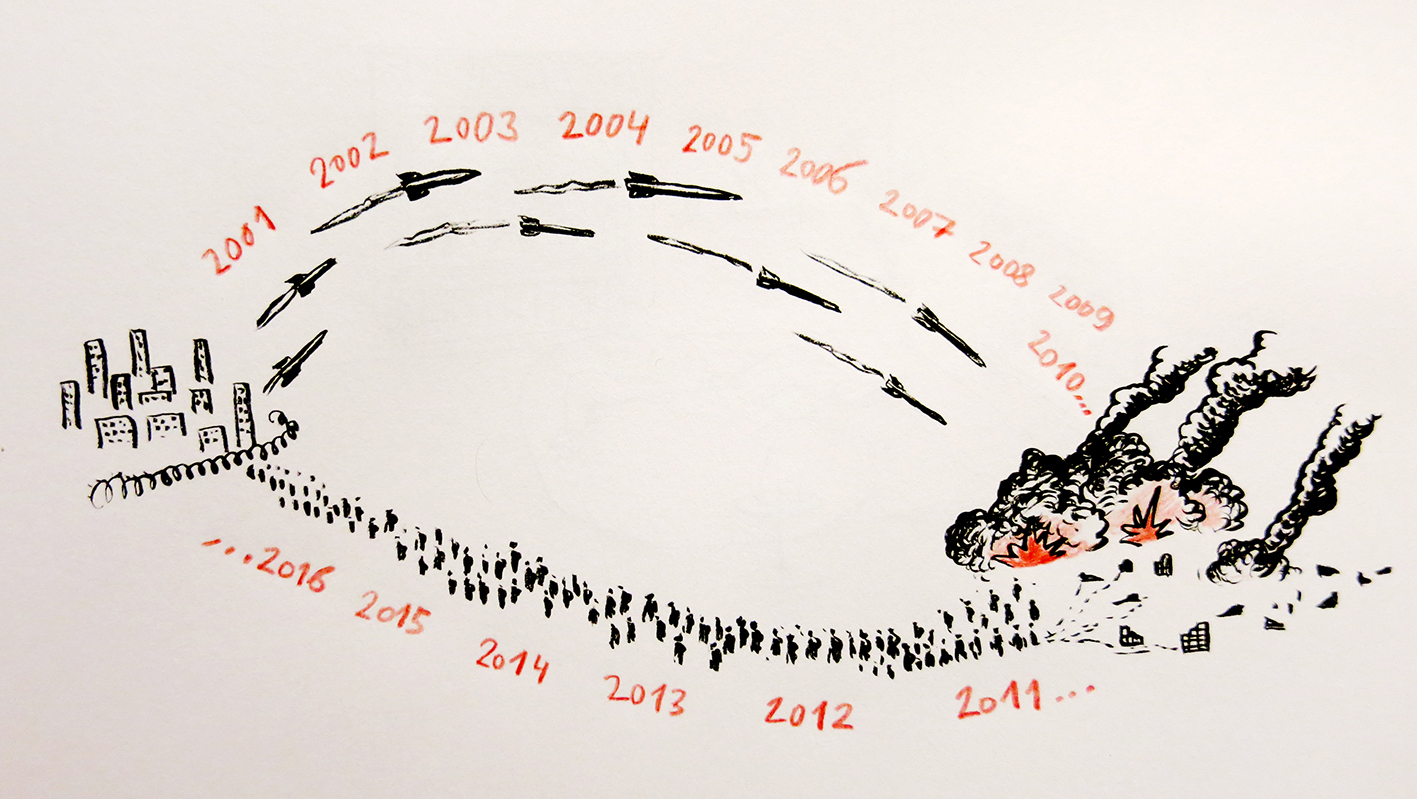 2001
2002
2003
2004
2005
2006
2007
2008
2009
2010...
2011...
2012
2013
2014
2015
...2016